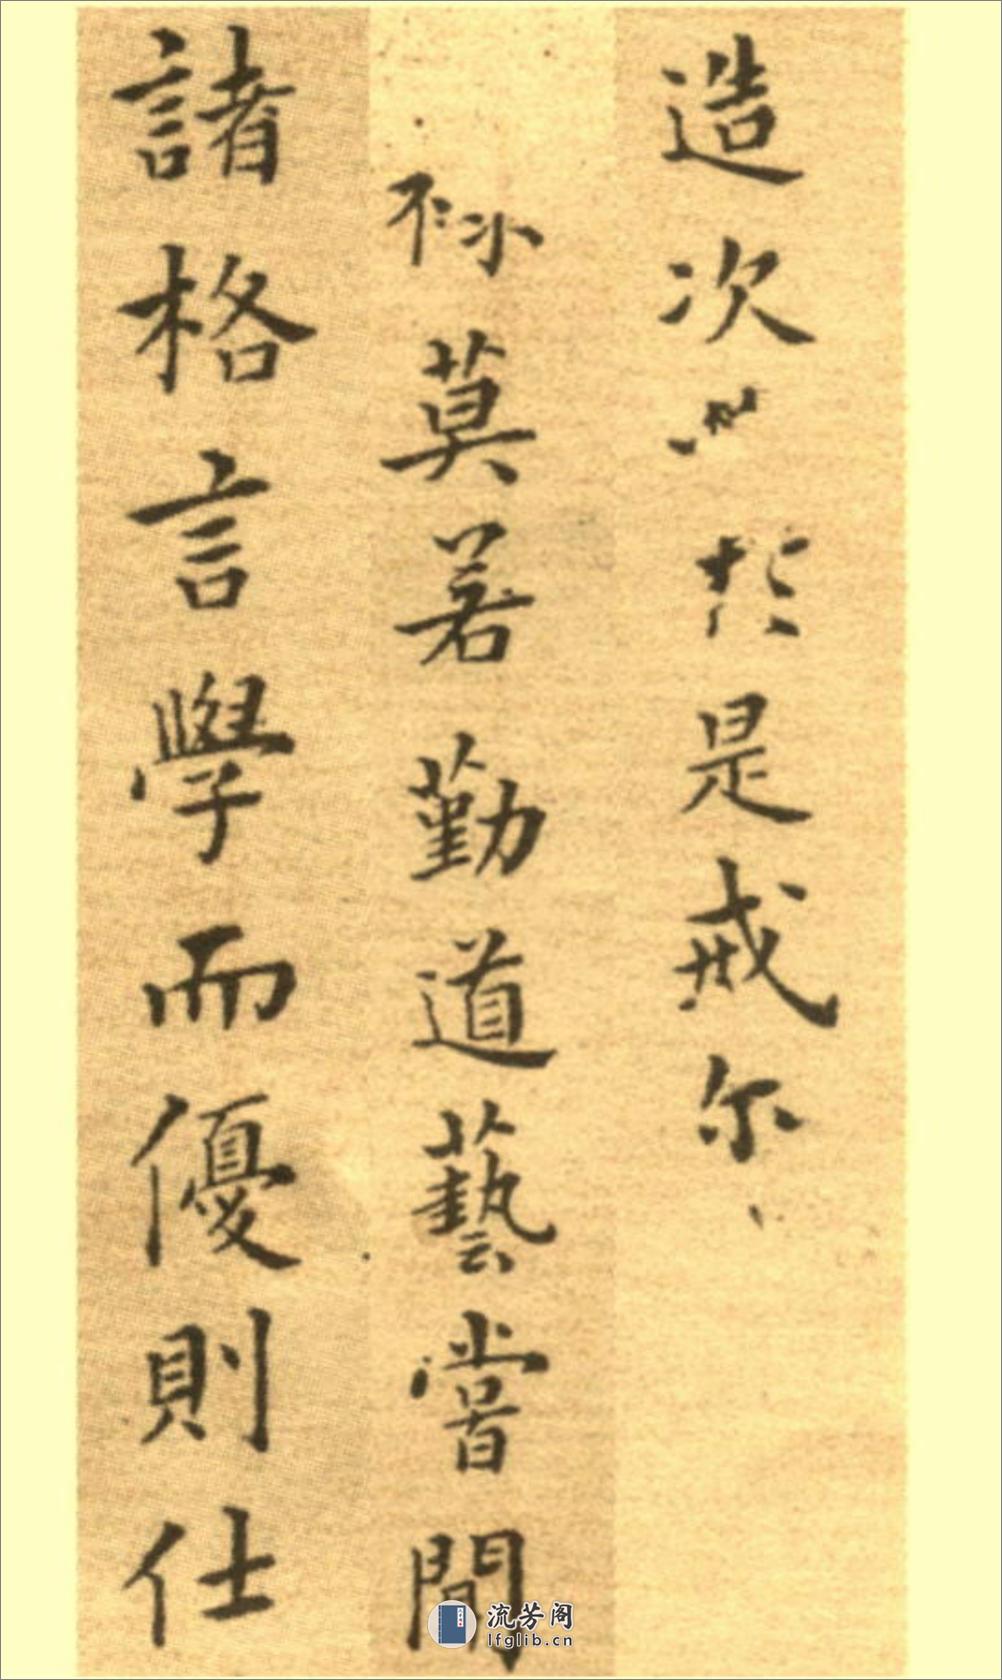 造次必於是戒尔
莫若勤道藝嘗聞
諸格言學而優則仕
流芳阁
lfglib.cn